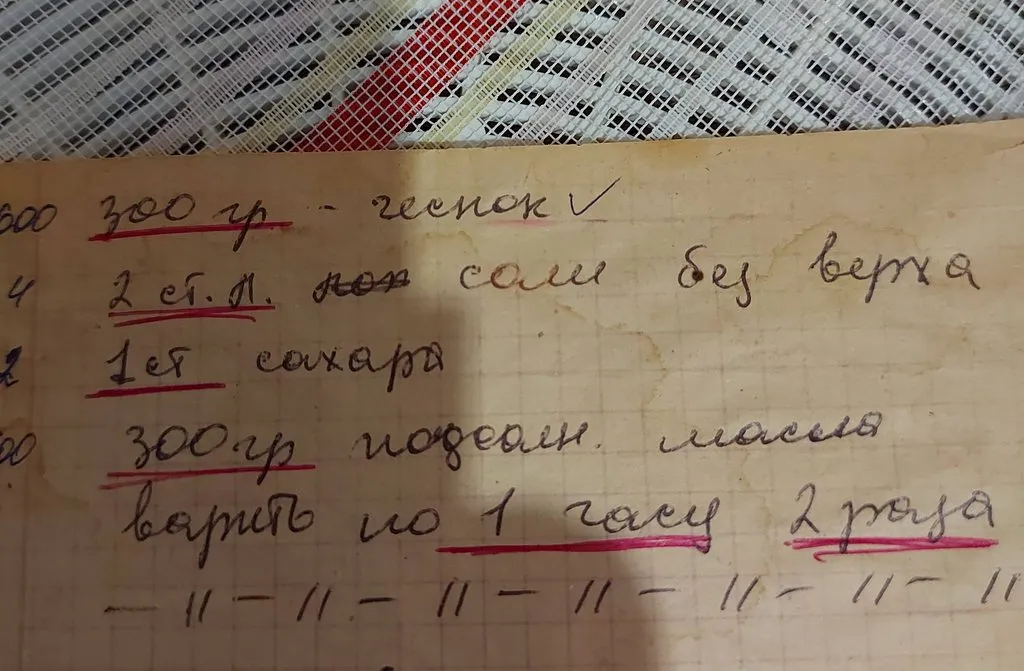 600 300 гр - чеснок ✓
4 2 ст. л. соли без верха
2 1 ст сахара
00 300 гр подсолн. масла
варить по 1 часу 2 раза
— // — // — // — // — // — // — //